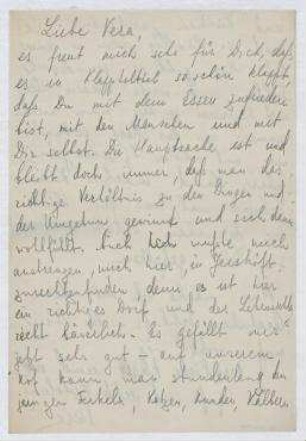 Liebe Vera,
es freut mich sehr für Dich, daß
es in so schön klappt,
daß Du mit dem Essen zufrieden
bist, mit den Menschen und mit
Dir selbst. Die Hauptsache ist und
bleibt doch immer, daß man das
richtige Verhältnis zu den Dingen und
der Umgebung gewinnt und sich dann
wohlfühlt. Auch ich mußte mich
anstrengen, mich hier, in
zurechtzufinden, denn es ist hier
ein richtiges Dorf und der
recht ländlich. Es gefällt mir
jetzt sehr gut – auf unserem
Hof kann man stundenlang den
jungen Ferkeln, Katzen, Hunden, Kälbern